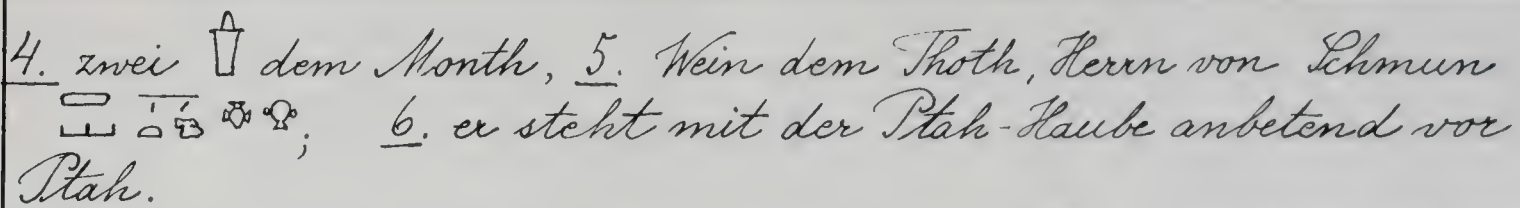 4. zwei dem Month, 5. Wein dem Thoth, Herrn von Schmun
; 6. er steht mit der Ptah-Haube anbetend vor
Ptah.